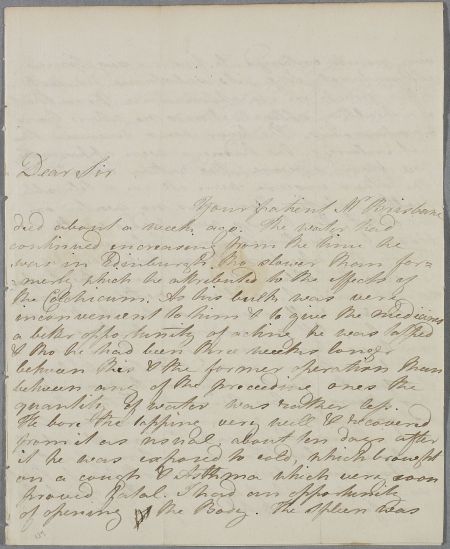 Dear Sir
Your patient Mr Brisbane
died about a week ago. The water had
continued increasing from the time he
was in Edinburgh tho slower than for-
merly which he attributed to the effects of
the Colchicum. As his bulk was very
inconvenient to him & to give the medicines
a better opportunity of acting he was tapped
& tho he had been three weeks longer
between this & the former operation than
between any of the preceeding ones the
quantity of water was rather less.
He bore the tapping very well & recovered
from it as usual, about ten days after
it he was exposed to cold, which brought
on a cough & Asthma which very soon
proved fatal. I had an opportunity
of opening the Body. The Spleen was